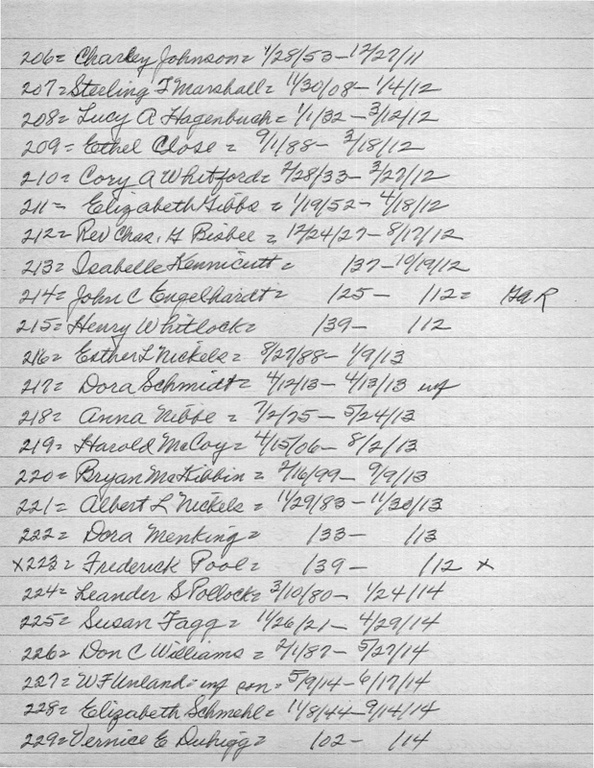 206= Charley Johnson= 4/28/53-12/27/11
207=Sterling T Marshall= 11/30/08- 1/4/12
208= Lucy A Hagenbuch= 1/1/32- 3/12/12
209= Ethel Close= 9/1/88- 3/18/12
210= Cory A Whitford= 2/28/33- 3/27/12
211= Elizabeth Gibbs = 1/19/52- 4/18/12
212= Rev Chas. G Bisbee = 12/24/27- 8/17/12
213= Isabelle Kennicutt= /37-10/19/12
214= John C Engelhardt= /25- /12= GaR
215= Henry Whitlock= /39- /12
216= Esther L Nickels= 8/27/88- 1/9/13
217= Dora Schmidt= 4/12/13- 4/13/13 inf
218= Anna Nibbe= 7/2/75- 5/24/13
219= Harold McCoy= 4/15/06- 8/2/13
220= Bryan McKibbin= 2/16/99- 9/9/13
221= Albert L Nickels= 11/29/83-11/30/13
222= Dora Menking= /33- /13
x223= Frederick Pool= /39- /12 x
224= Leander S Pollock= 3/10/80- 1/24/14
225= Susan Fagg= 11/26/21- 4/29/14
226= Don C Williams= 2/1/87- 5/27/14
227= W F Unland= inf son= 5/9/14-6/17/14
228= Elizabeth Schmehl= 11/8/44-9/14/14
229=Vernice E Duhigg= /02- /14